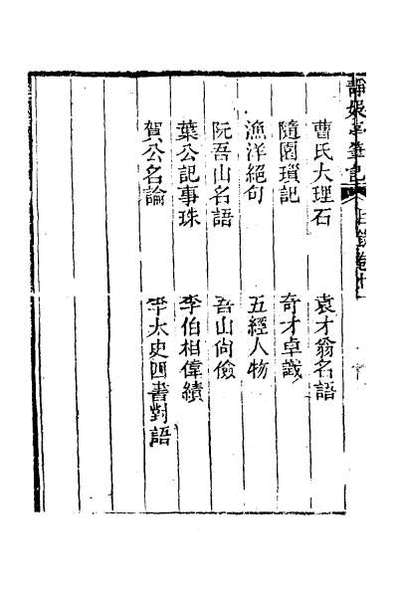 靜娛亭筆記 目錄卷十
曹氏大理石 袁才翁名語
隨園瑣記 奇才卓識
漁洋絕句 五經人物
阮吾山名語 吾山尙儉
葉公記事珠 李伯相偉績
賀公名論 平太史四書對語